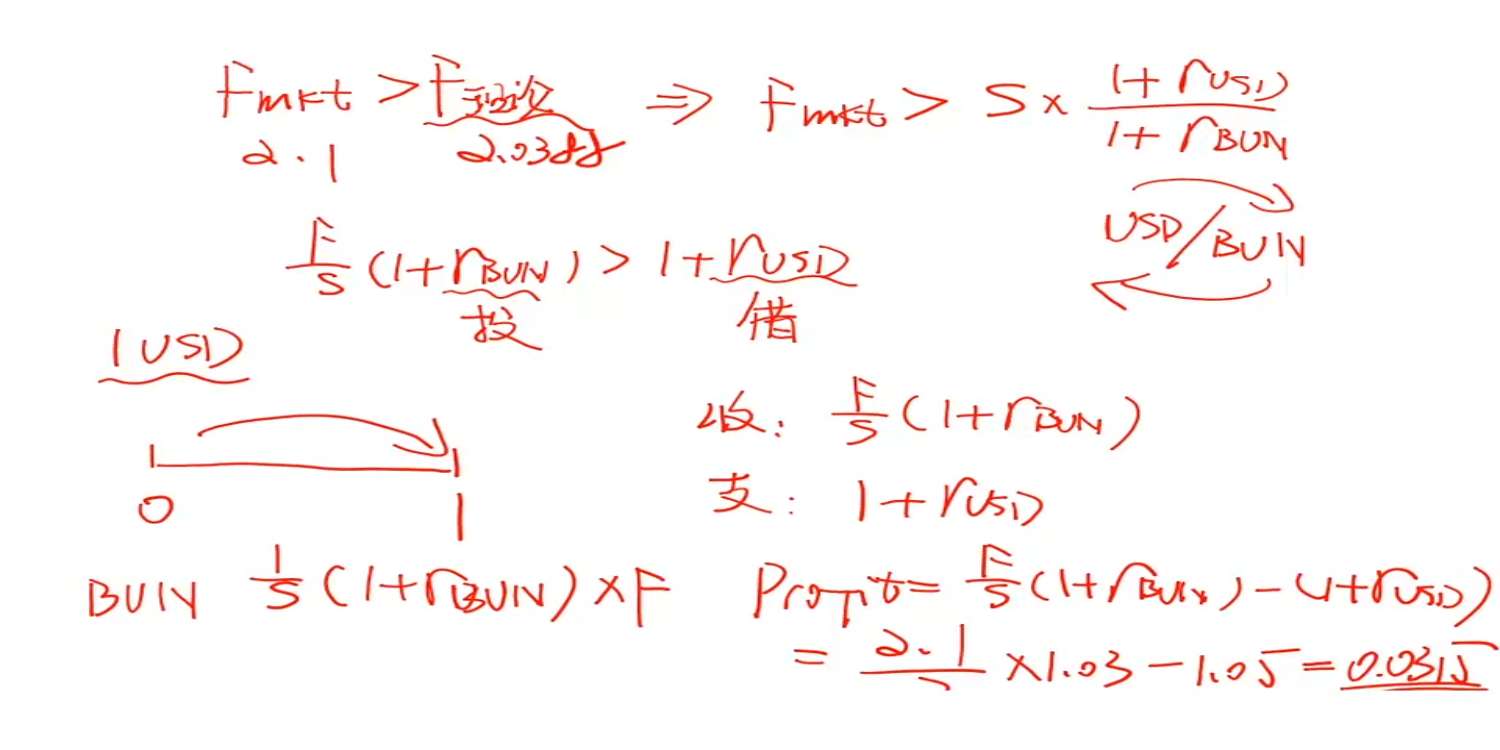 Fmkt > F理论 ⇒ Fmkt > S × (1+rUSD)/(1+rBUN)
2.1 2.0388
USD/BUN
F/S (1+rBUN) > 1+rUSD
投 借
1 USD
收: F/S (1+rBUN)
0 1
支: 1+rUSD
BUN 1/S (1+rBUN) × F
Profit = F/S (1+rBUN) - (1+rUSD)
= 2.1/2 × 1.03 - 1.05 = 0.0315